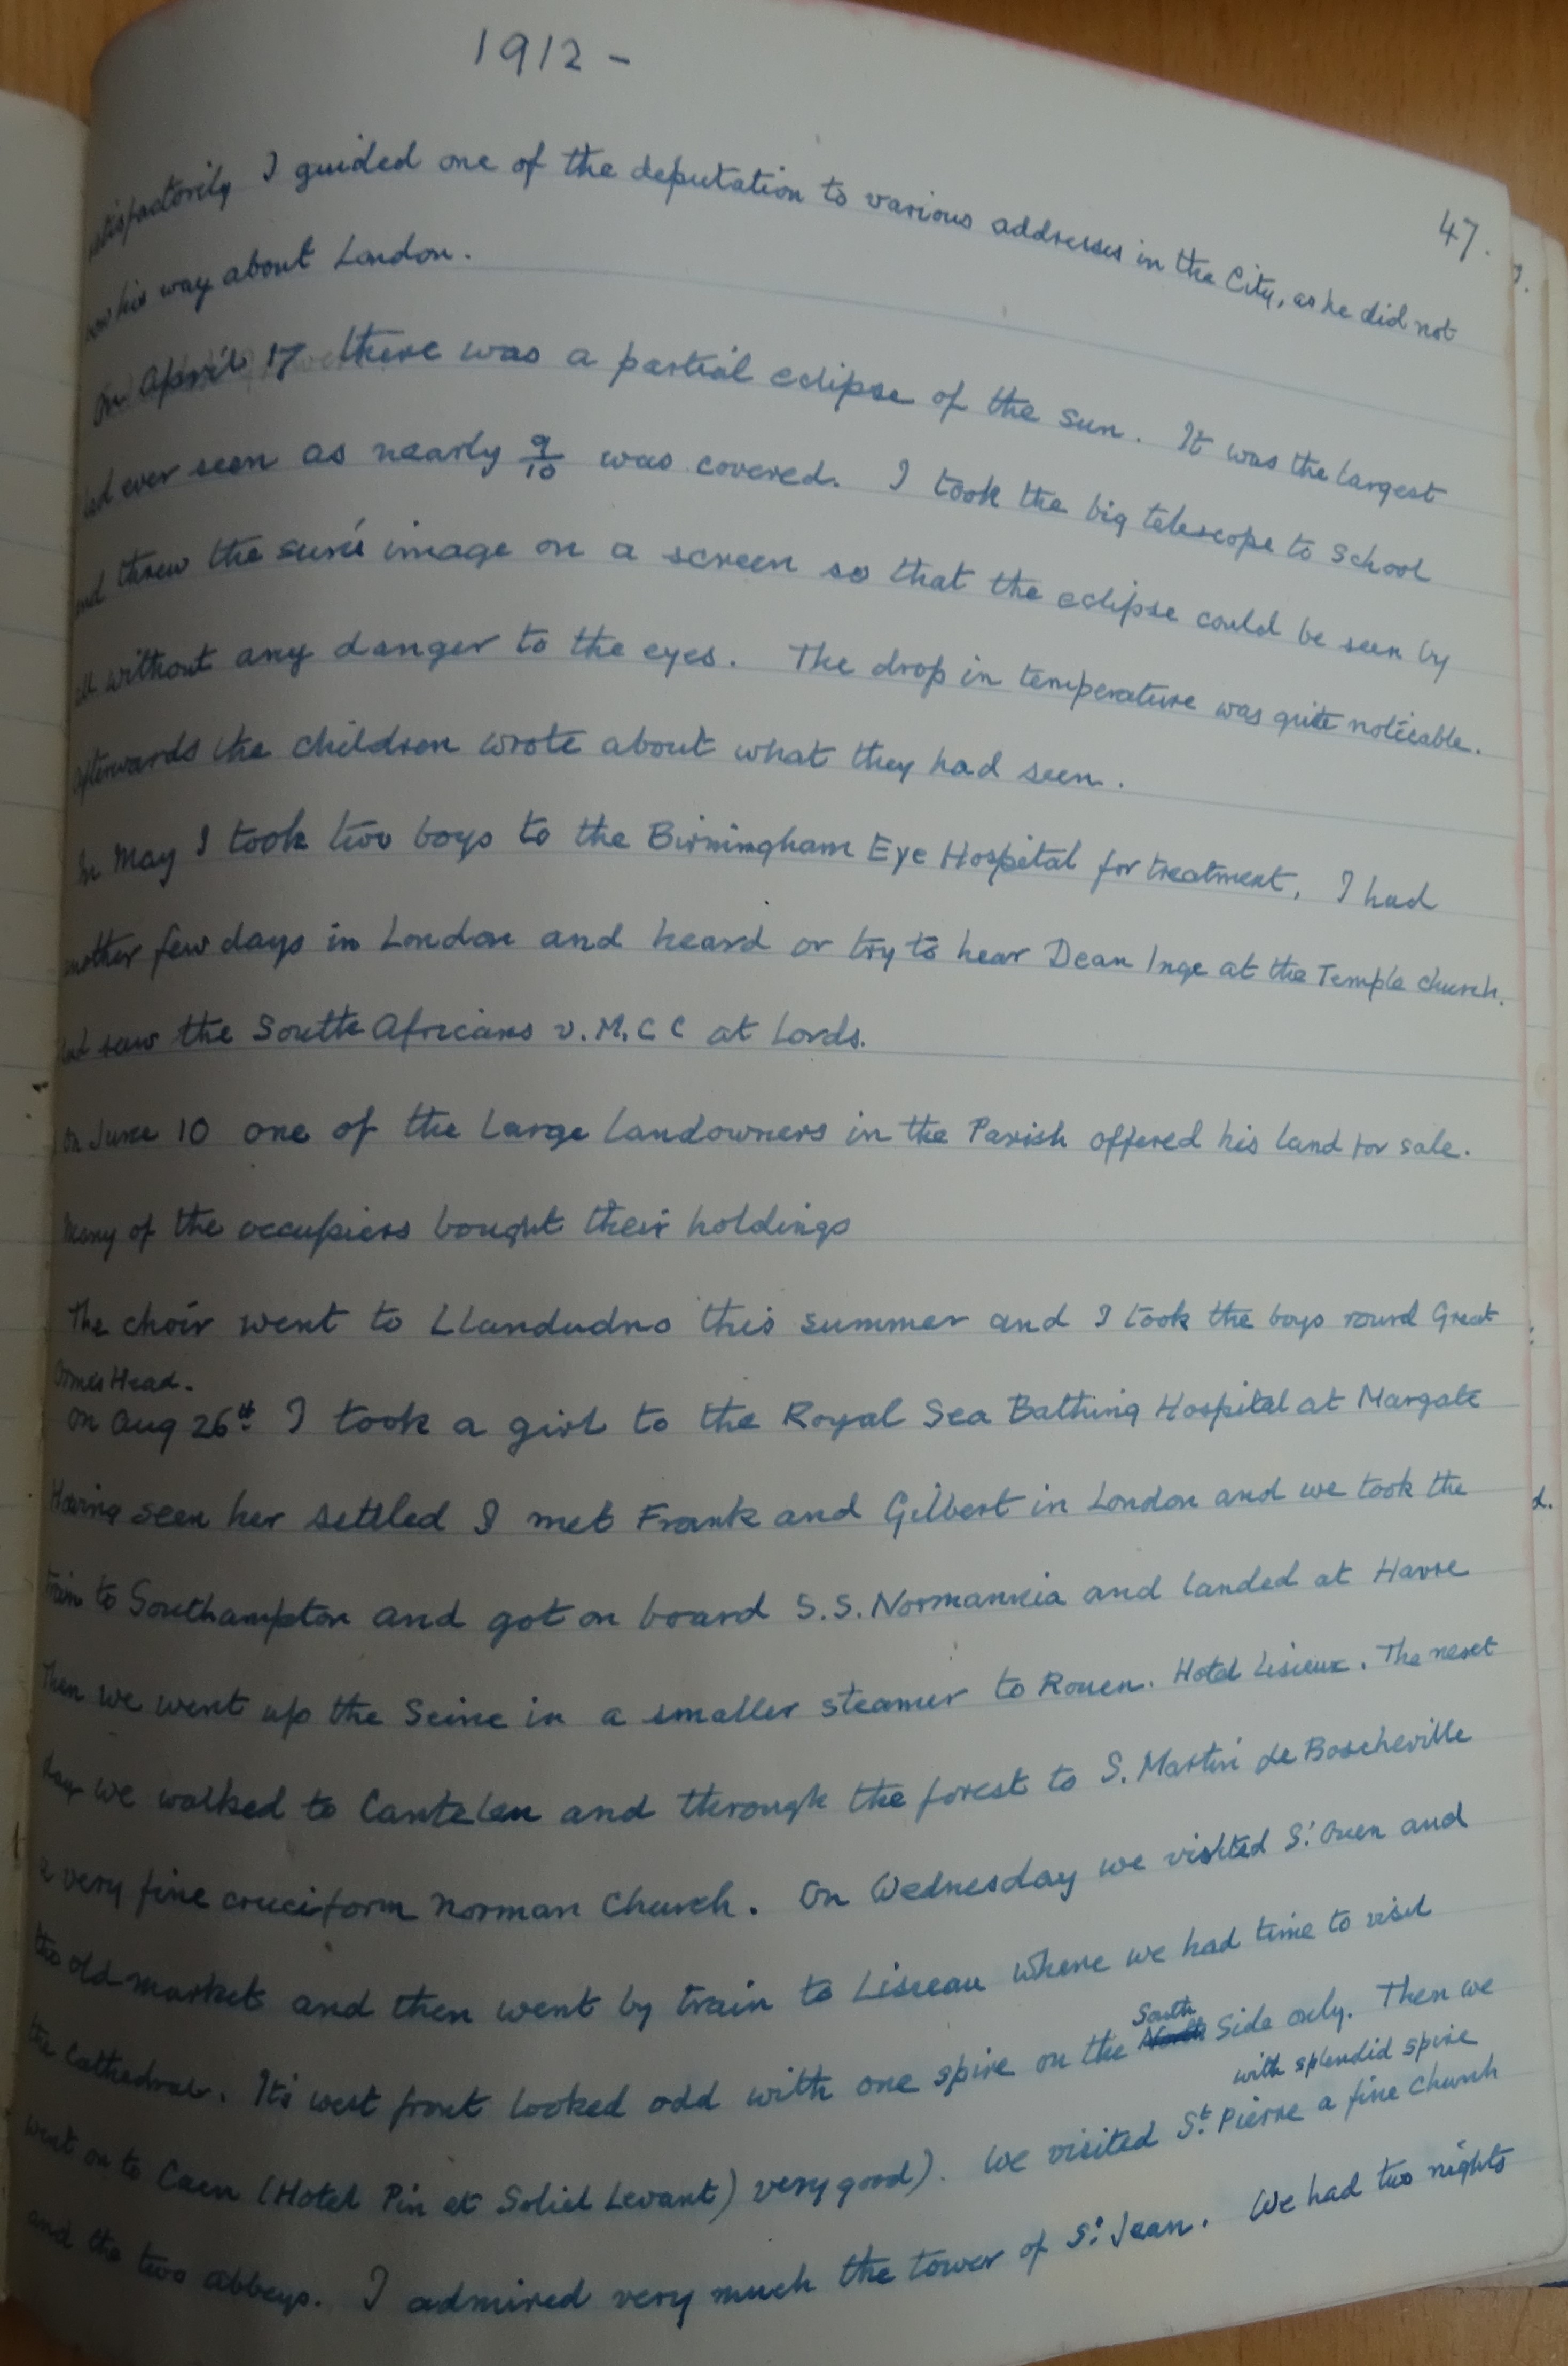 1912 -
47.
satisfactorily I guided one of the deputation to various addresses in the City, as he did not
know his way about London.
On April 17 there was a partial eclipse of the sun. It was the largest
had ever seen as nearly 9/10 was covered. I took the big telescope to School
and threw the sun's image on a screen so that the eclipse could be seen by
all without any danger to the eyes. The drop in temperature was quite noticeable.
Afterwards the children wrote about what they had seen.
In May I took two boys to the Birmingham Eye Hospital for treatment, I had
another few days in London and heard or try to hear Dean Inge at the Temple church.
and saw the South Africans v. M.C C at Lords.
On June 10 one of the large landowners in the Parish offered his land for sale.
Many of the occupiers bought their holdings
The choir went to Llandudno this summer and I took the boys round Great
Ormes Head.
On Aug 26th I took a girl to the Royal Sea Bathing Hospital at Margate
Having seen her settled I met Frank and Gilbert in London and we took the
train to Southampton and got on board S.S. Normannia and landed at Havre
Then we went up the Seine in a smaller steamer to Rouen. Hotel Lisieux. The next
day we walked to Canteleu and through the forest to S. Martin de Boscheville
a very fine cruciform Norman Church. On Wednesday we visited St. Ouen and
the old market and then went by train to Lisieau where we had time to visit
the Cathedral. It's west front looked odd with one spire on the South side only. Then we
with splendid spire
went on to Caen (Hotel Pin et Soliel Levant) very good). We visited St. Pierre a fine church
and the two abbeys. I admired very much the tower of St. Jean. We had two nights